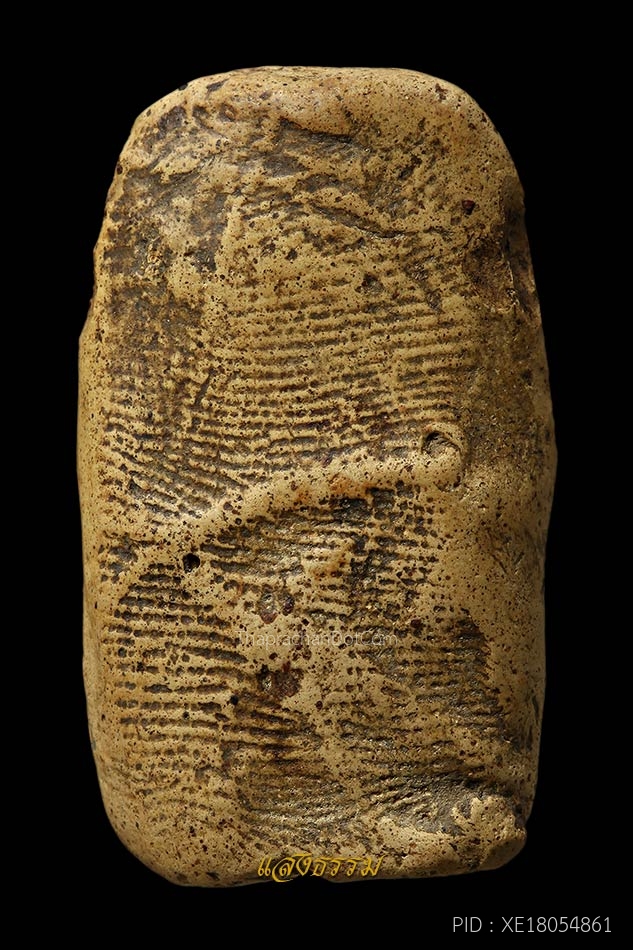 Thaprachandot.com
แสงธรรม
PID : XE18054861